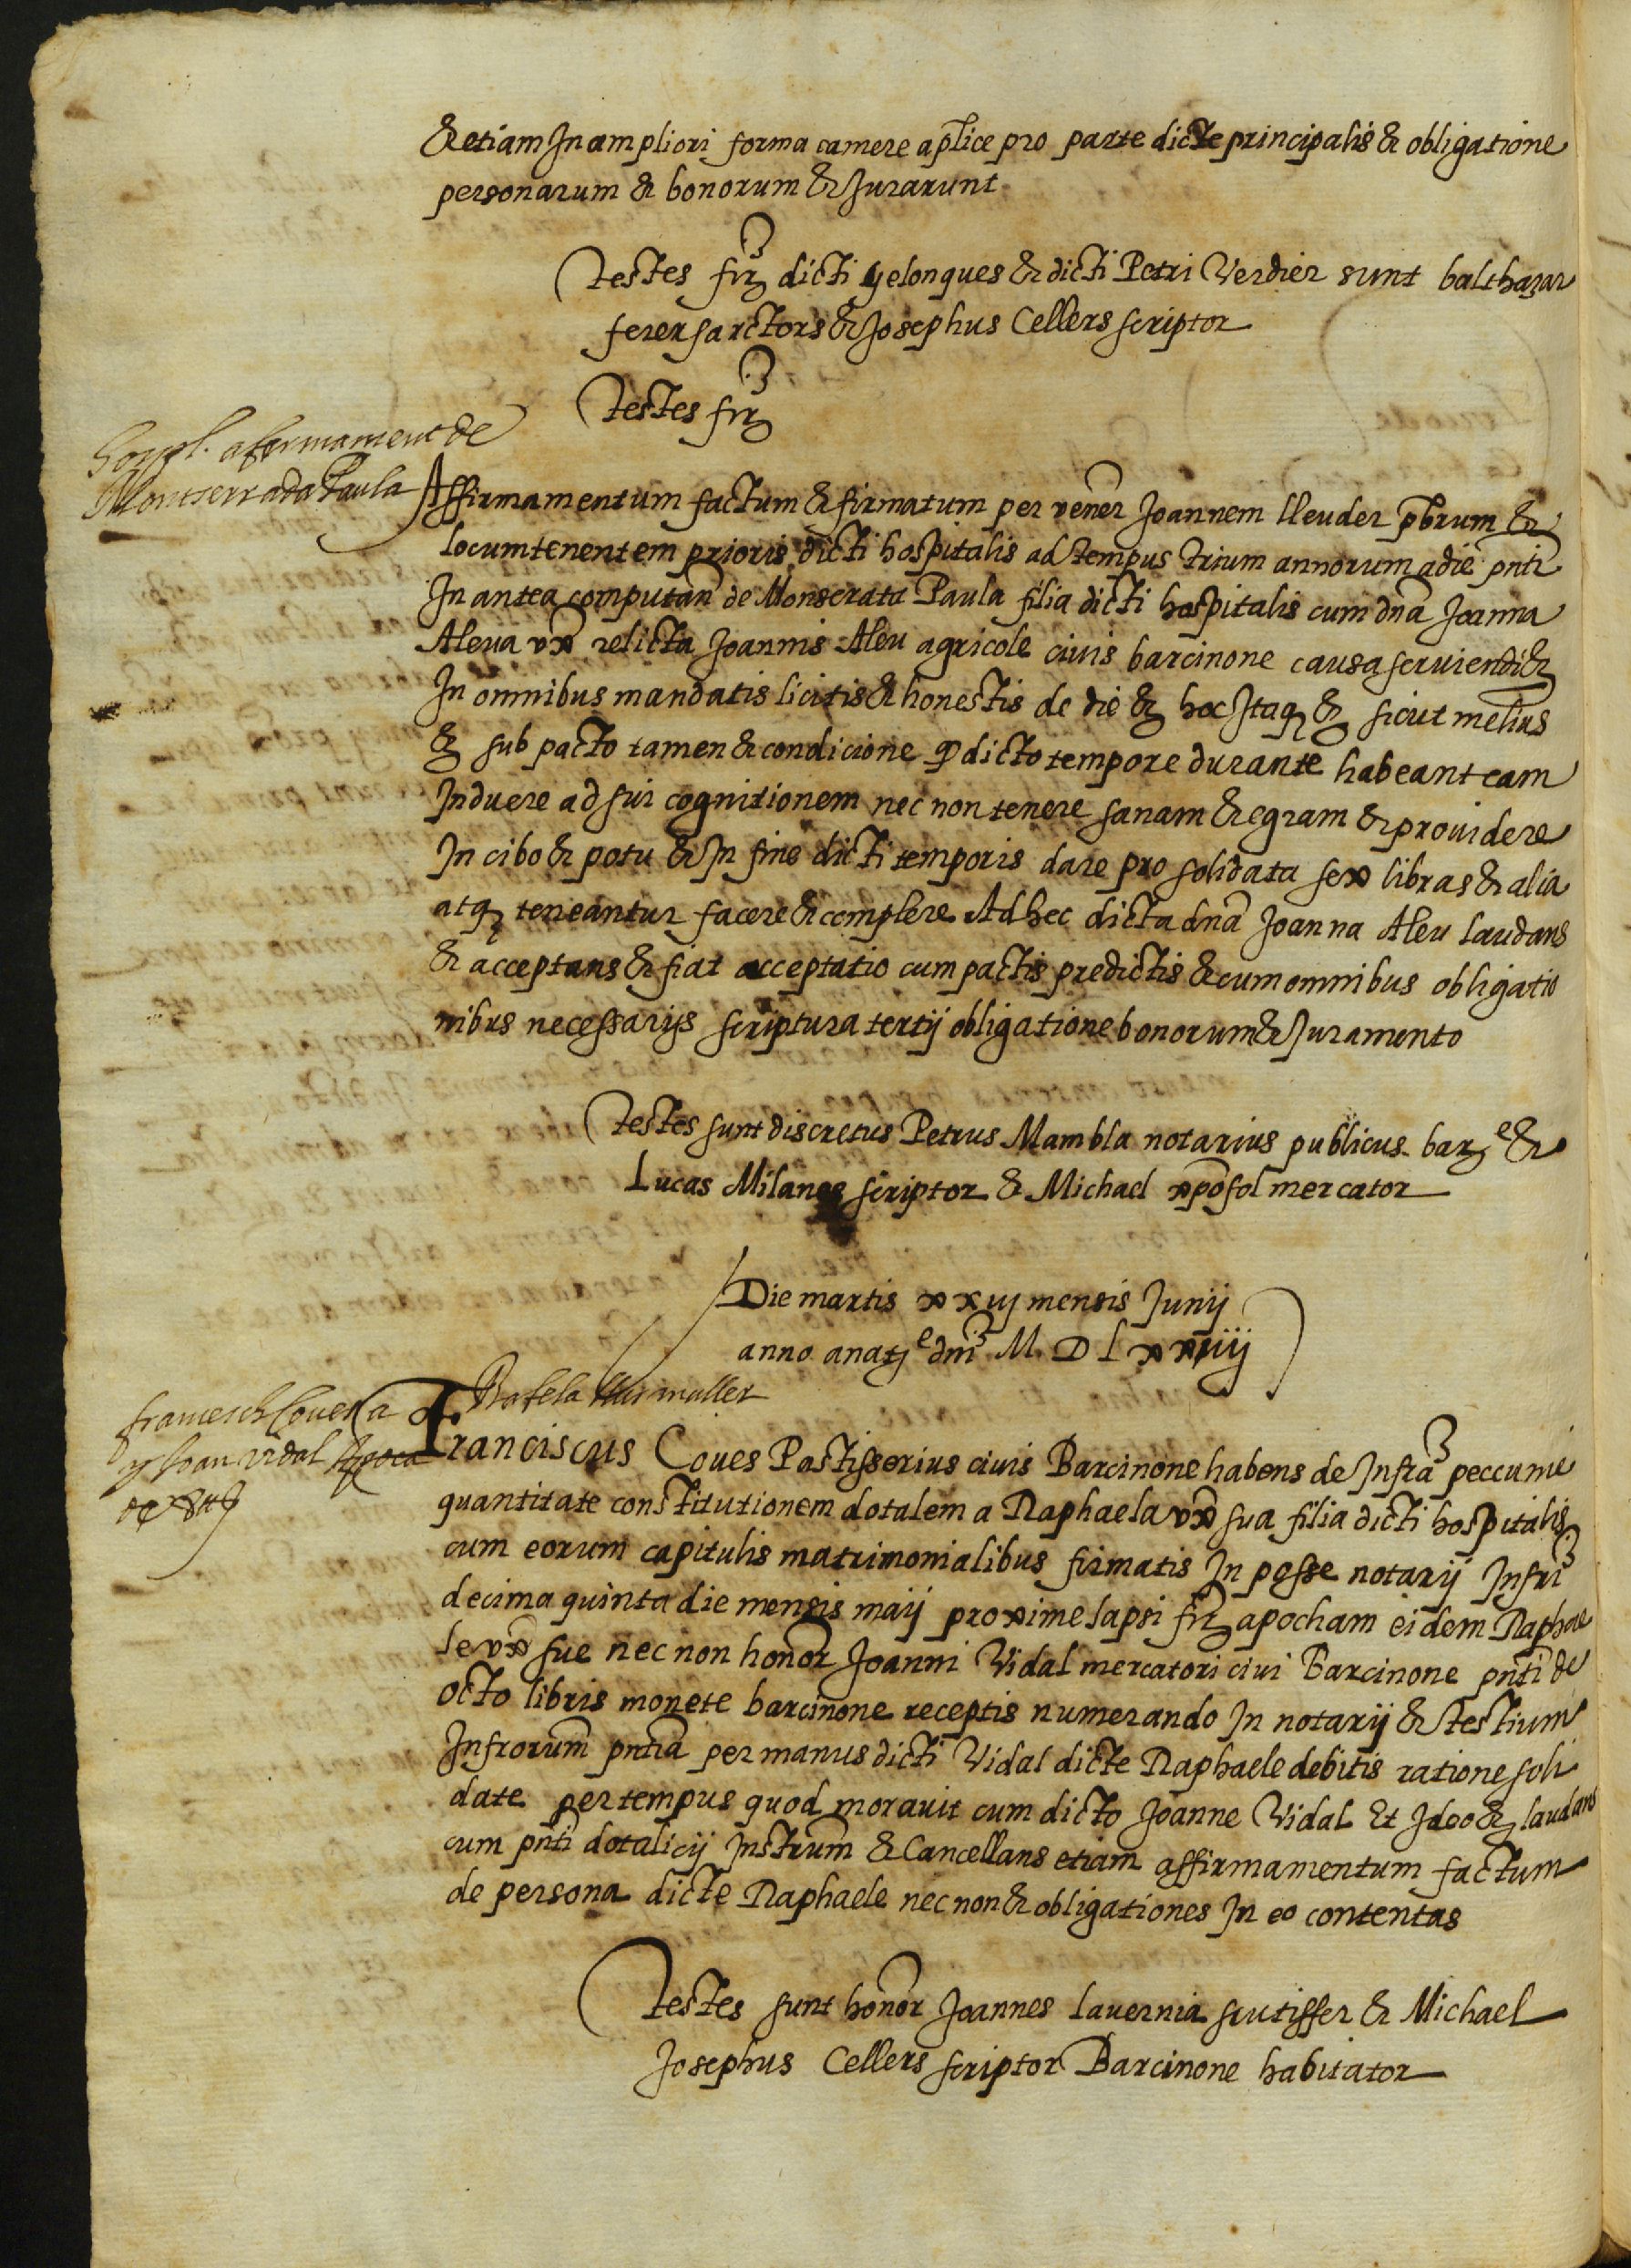 & etiam In ampliori forma camere aplice pro parte dicte principalis & obligatione
personarum & bonorum & Jurarunt
testes frz dicti yelonques & dicti Petri Verdier sunt balthazar
ferer sarctors & Josephus Cellers scriptor
testes frz
afermament de
Montserrada Paula
Affirmamentum factum & firmatum per vener Joannem lleuder pbrum &
locumtenentem prioris dicti hospitalis ad tempus trium annorum a die pnti
In antea computan de Monserata Paula filia dicti hospitalis cum dna Joanna
Aleua vx relicta Joannis Aleu agricole ciuis barcinone causa seruiendi &
In omnibus mandatis licitis & honestis de die & hoc Itaq & sicut melius
& sub pacto tamen & condicione q dicto tempore durante habeant eam
Induere ad sui cognitionem nec non tenere sanam & egram & prouidere
In cibo & potu & In fine dicti temporis dare pro solidata sex libras & alia
atq teneantur facere & complere Ad hec dicta dna Joanna Aleu laudans
& acceptans & fiat acceptatio cum pactis predictis & cum omnibus obligatio
nibus necessarijs scriptura tertij obligatione bonorum & Juramento
testes sunt discretus Petrus Mambla notarius publicus bar e &
Lucas Milanes scriptor & Michael xpofol mercator
Die martis xxiij mensis Junij
anno a nat e dni M D L xxiiij
Rafela
francesch Coues a
y Joan vidal Apoca
de 8 ll
Franciscus Coues Pastisserius ciuis Barcinone habens de Infra peccunie
quantitate constitutionem dotalem a Raphaela vx sua filia dicti hospitalis
cum eorum capitulis matrimonialibus firmatis In posse notarij Infri
decima quinta die mensis maij proxime lapsi frz apocham eidem Raphae
le vx sue nec non honor Joanni Vidal mercatori ciui Barcinone pnti de
octo libris monete barcinone receptis numerando In notarij & testium
Infrorum pntia per manus dicti Vidal dicte Raphaele debitis ratione soli
date per tempus quod morauit cum dicto Joanne Vidal Et Ideo & laudans
cum pnti dotalicij Instrum & Cancellans etiam affirmamentum factum
de persona dicte Raphaele nec non & obligationes In eo contentas
testes sunt honor Joannes lauernia scutiffer & Michael
Josephus Cellers scriptor Barcinone habitator